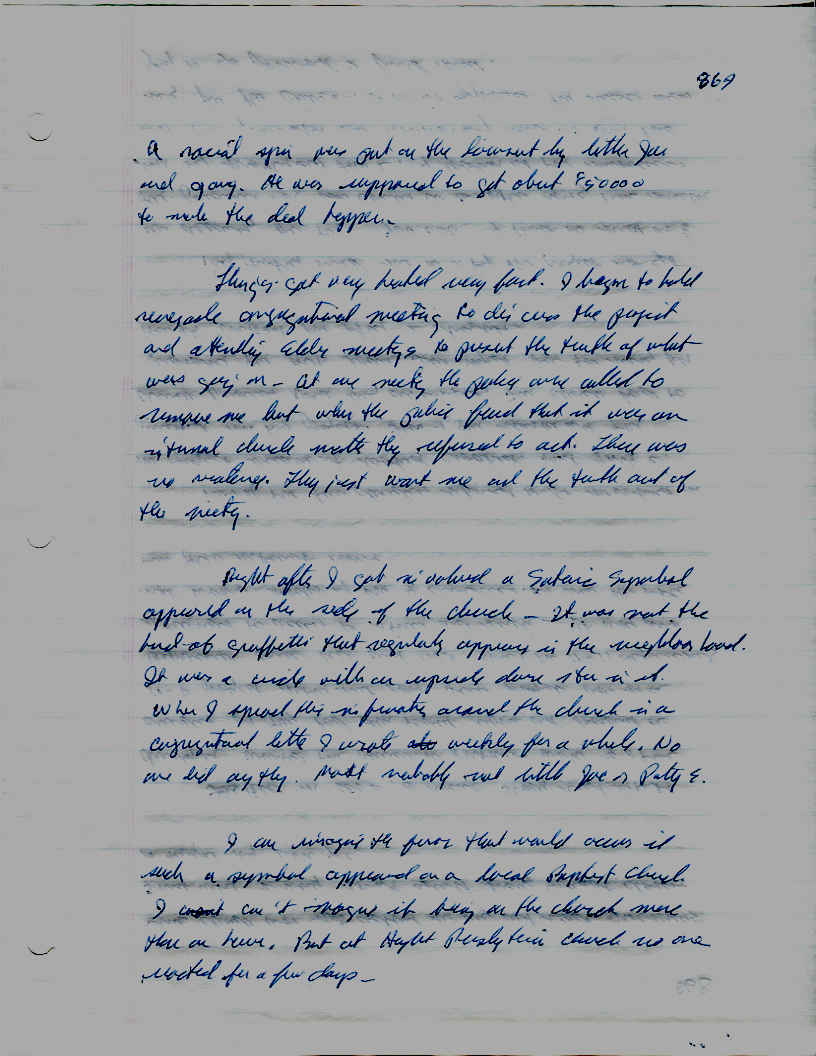 869
A racial spin was put on the linout by little Joe
and gang. He was supposed to get about $50000
to make the deal happen.
Things got very heated very fast. I began to hold
renegade congregational meeting to discuss the project
and attending Elder meetings to present the truth of what
was going on - At one meeting the police were called to
remove me but when the police found that it was an
internal church matter they refused to act. There was
no violence. They just want me and the truth out of
the meeting.
Right after I got involved a Satanic Symbol
appeared on the side of the church - It was not the
kind of graffetti that regularly appears in the neighborhood.
It was a circle with an upside down star in it.
When I spread this information around the church in a
congregational letter I wrote weekly for a while. No
one did anything. Most notably not little Joe or Patty E.
I can imagine the furor that would occur if
such a symbol appeared on a local Baptist Church
I can't imagine it being on the church more
than an hour. But at Haight Presbyterian church no one
reacted for a few days -